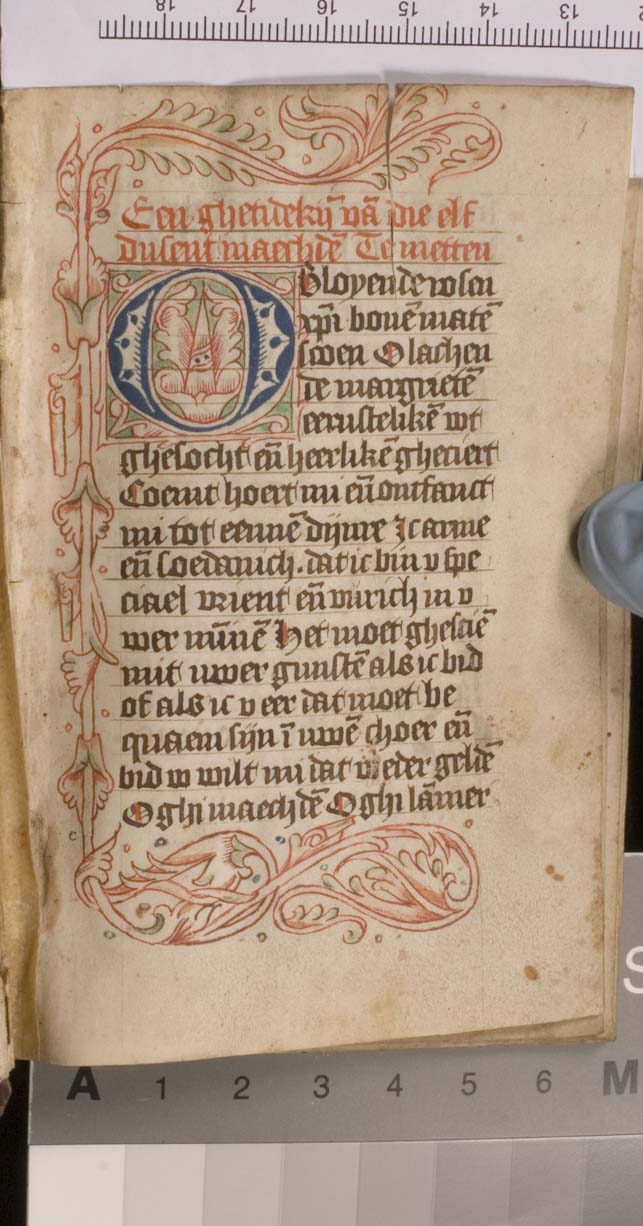 18 17 16 15 14 13
Een ghetidekiᷠ vā die elf
dusent maechdē Te metten
O Bloyende rosen
xp̄i bouē matē
scoen O lachen
de margrietē
eernstelikē wt
ghesocht eñ heerlikē ghetiert
Coemt hoert mi eñ ontfanct
mi tot eennē dijnre Ic arme
eñ soedanich. dat ic bin v spe
ciael vrient eñ vurich in v
wer mīnē Het moet ghesciē
mit uwer gunstē als ic bid
of als ic v eer dat moet be
quaem sijn ī uwē choer eñ
bid w wilt mi dat weder geldē
O ghi maechdē O ghi lāmer
c
A 1 2 3 4 5 6 M